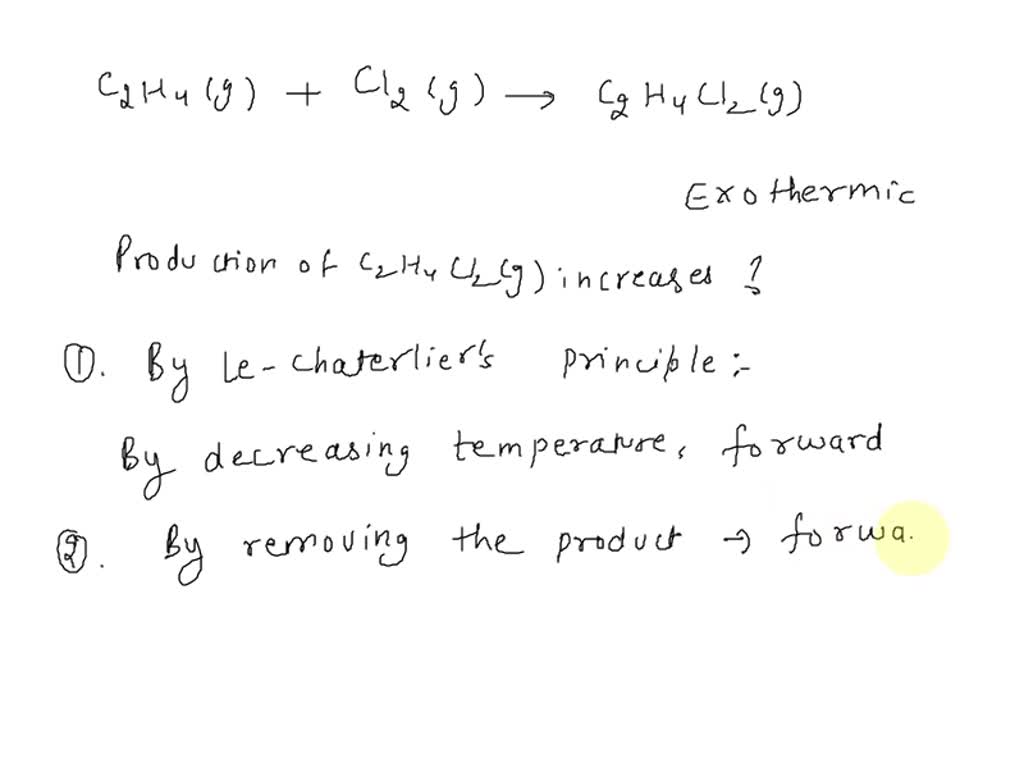 C₂H₄(g) + Cl₂(g) → C₂H₄Cl₂(g)
Exothermic
Production of C₂H₄Cl₂(g) increases ?
①. By Le-chaterlier's principle :-
By decreasing temperature, forward
②. By removing the product → forwa.